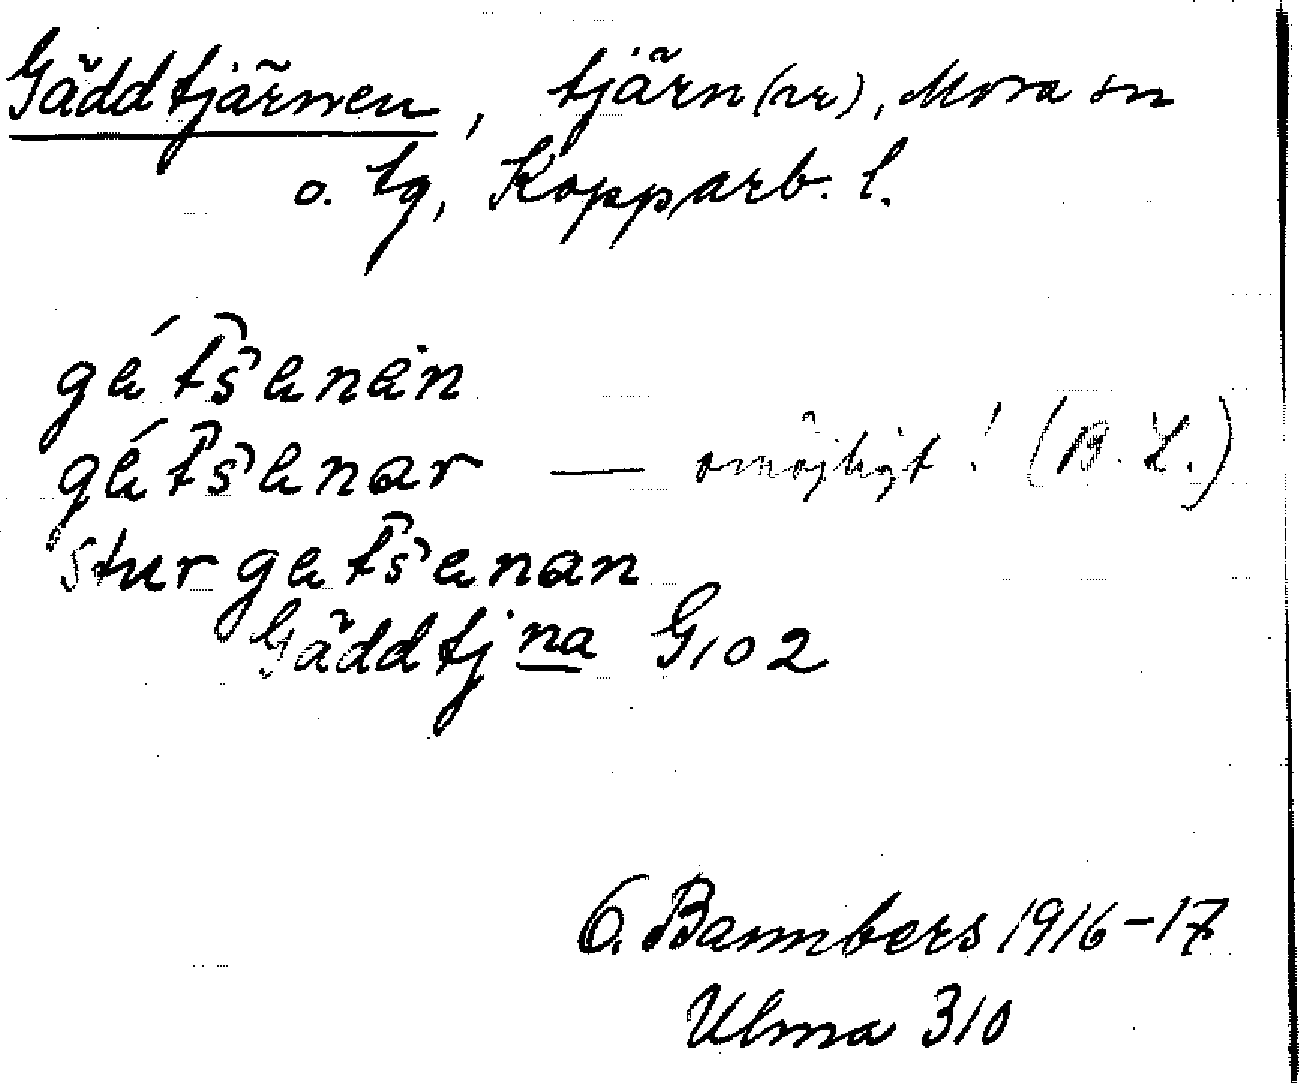 Gäddtjärnen, tjärn(ar), Mora sn
o. tg, Kopparb. l.
gätšenän
gätšenar — omöjligt! (B. L.)
stur getšenan
Gäddtjna G102
O. Bannbers 1916-17
Ulma 310